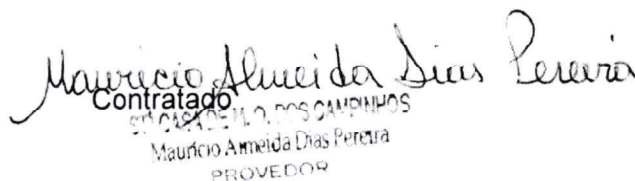 Mauricio Almeida Dias Pereira
Contratado
STª CASA DE M. O. DOS CAMPINHOS
Maurício Almeida Dias Pereira
PROVEDOR